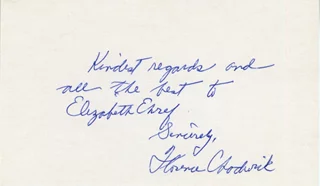 Kindest regards and
all the best to
Elizabeth Ehref
Sincerely,
Florence Chadwick